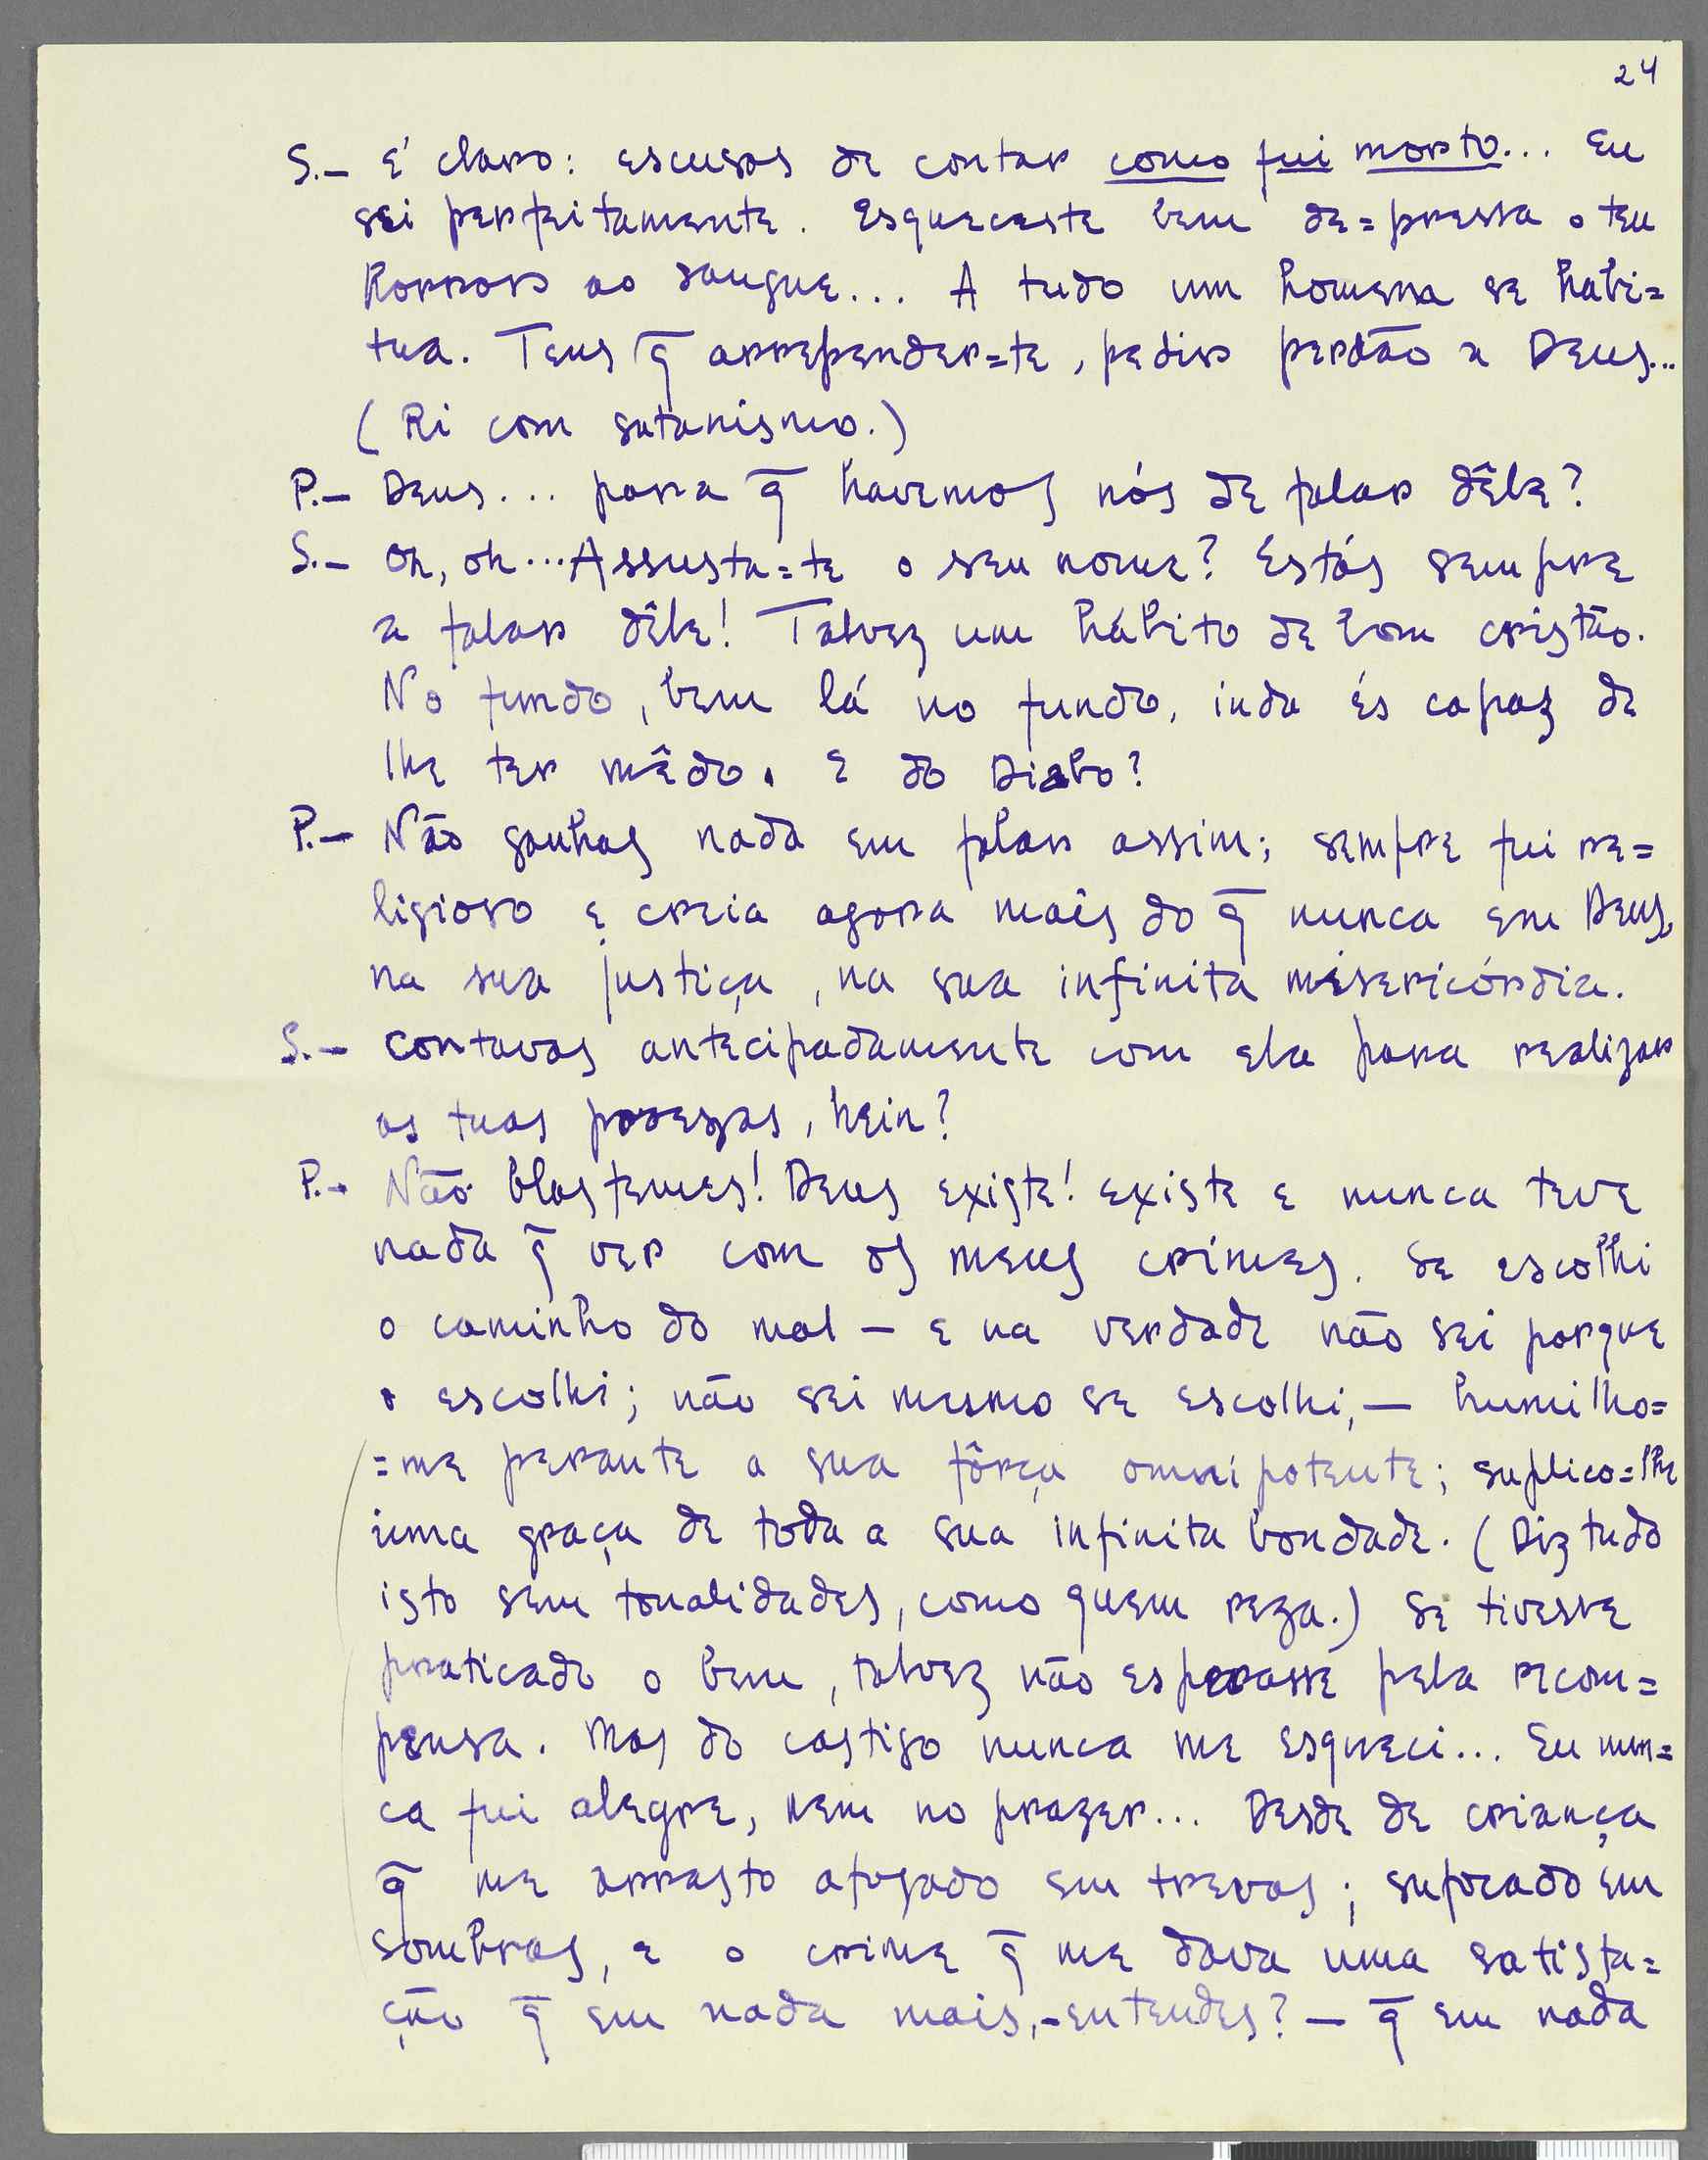 24
S.— É claro: escusas de contar como fui morto... Eu
sei perfeitamente. Esqueceste bem de=pressa o teu
horror ao sangue... A tudo um homem se habi=
tua. Tens q̄ arrepender=te, pedir perdão a Deus...
(Ri com satanismo.)
P.— Deus... para q̄ havemos nós de falar dêle?
S.— Oh, oh... Assusta=te o seu nome? Estás sempre
a falar dêle! Talvez um hábito de bom cristão.
No fundo, bem lá no fundo, inda és capaz de
lhe ter mêdo. E do Diabo?
P.— Não ganhas nada em falar assim; sempre fui re=
ligioso e creia agora mais do q̄ nunca em Deus,
na sua justiça, na sua infinita misericórdia.
S.— Contavas antecipadamente com ela para realizar
as tuas proezas, hein?
P.— Não blasfemes! Deus existe! existe e nunca teve
nada q̄ ver com os meus crimes. Se escolhi
o caminho do mal — e na verdade não sei porque
o escolhi; não sei mesmo se escolhi, — humilho=
=me perante a sua fôrça omnipotente; suplico=lhe
uma graça de toda a sua infinita bondade. (Diz tudo
isto sem tonalidades, como quem reza.) Se tivesse
praticado o bem, talvez não esperasse pela recom=
pensa. Mas do castigo nunca me esqueci... Eu nun=
ca fui alegre, nem no prazer... Desde de criança
q̄ me arrasto afogado em trevas; sufocado em
sombras, e o crime q̄ me dava uma satisfa=
ção q̄ em nada mais, - entendes? — q̄ em nada